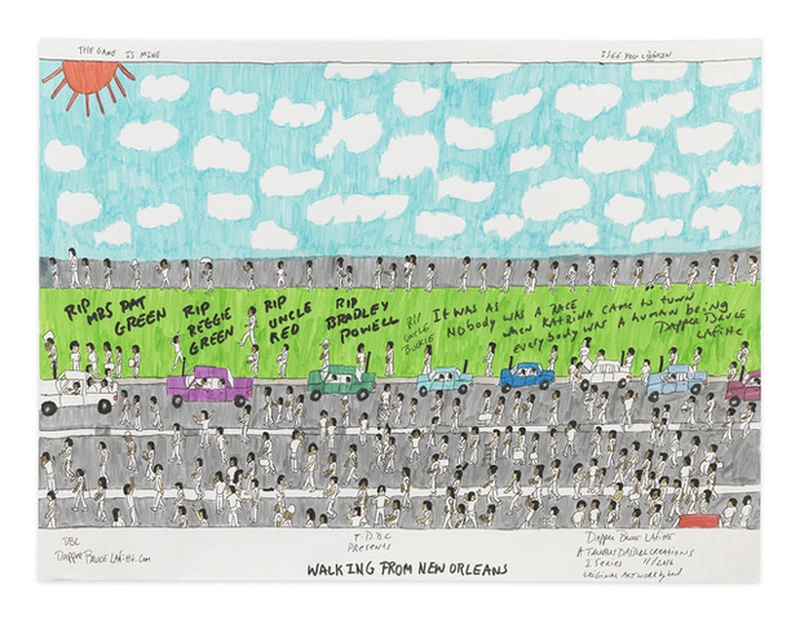 THE GAME IS MINE
I SEE YOU
RIP
MRS PAT
GREEN
RIP
REGGIE
GREEN
RIP
UNCLE
RED
RIP
BRADLEY
POWELL
RIP
UNCLE
BUCKIE
IT WAS AS
NOBODY WAS A RACE
WHEN KATRINA CAME TO TOWN
EVERYBODY WAS A HUMAN BEING
DAPPER BRUCE
LAFITTE
DBC
DAPPERBRUCELAFITTE.COM
T.D.B.C
PRESENTS
WALKING FROM NEW ORLEANS
DAPPER BRUCE LAFITTE
A CREATIONS
I SERIES 11/2016
ORIGINAL ARTWORK by hand